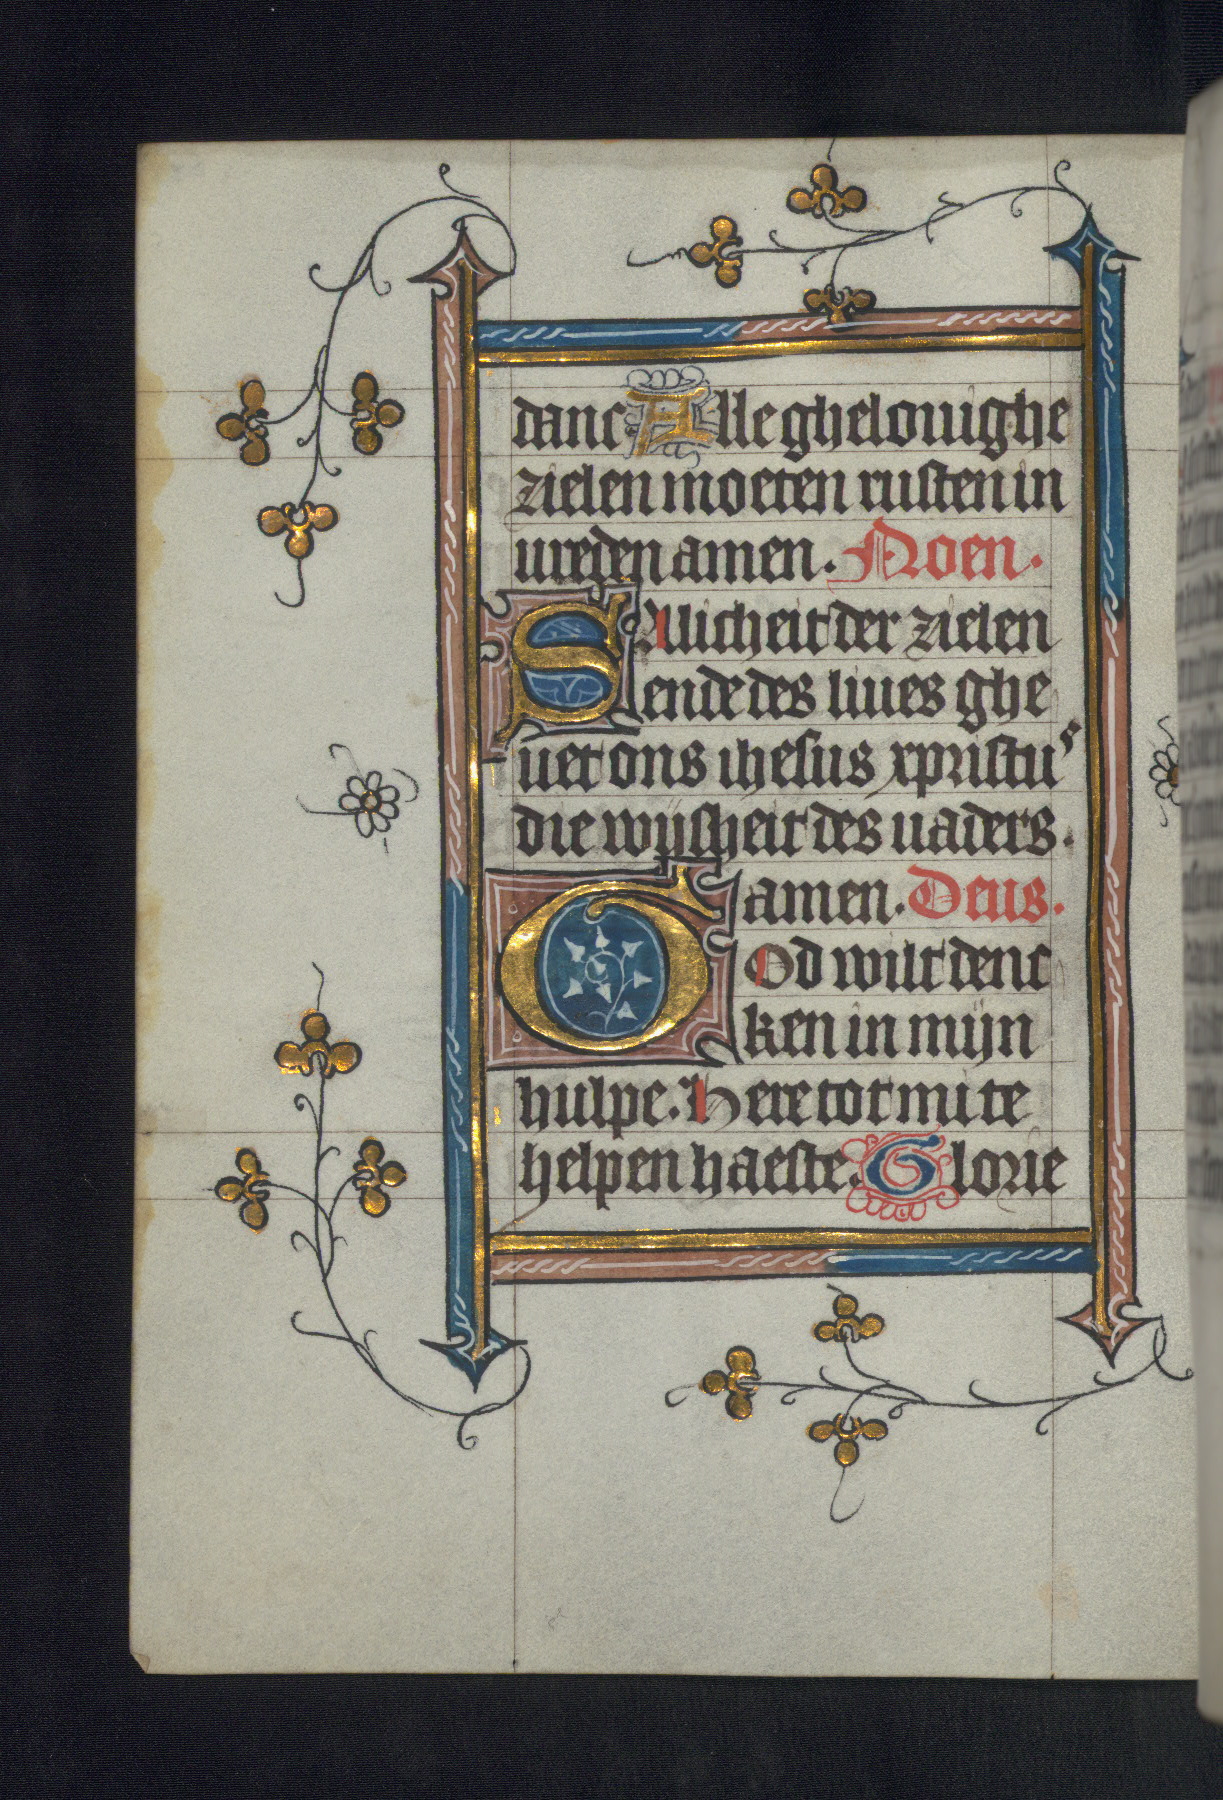 danc. Alle ghelouighe
zielen moeten rusten in
ureden amen. Noen.
Salicheit der zielen
ende des liues ghe
uet ons ihesus xpristus
die wijsheit des uaders.
amen. Deus.
God wilt denc
ken in mijn
hulpe. Here tot mi te
helpen haeste. Glorie